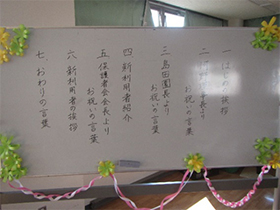 一 はじめの挨拶
二 理事長より
お祝いの言葉
三 島田園長より
お祝いの言葉
四 新利用者紹介
五 保護者会会長より
お祝いの言葉
六 新利用者の挨拶
七 おわりの言葉